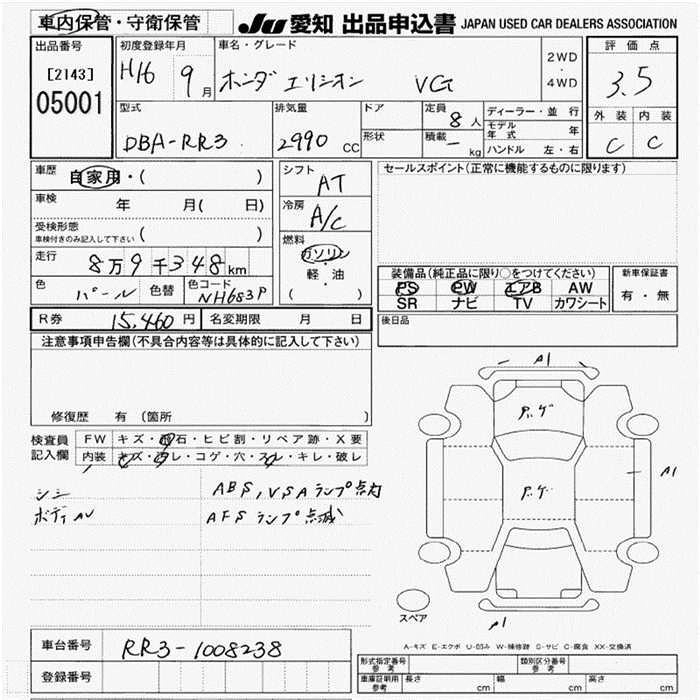 車内保管・守衛保管 JU 愛知 出品申込書 JAPAN USED CAR DEALERS ASSOCIATION
出品番号 初度登録年月 車名・グレード 2WD・4WD 評価点
[2143] H16 9月 ホンダ エリシオン VG 3.5
05001 外装 内装
型式 排気量 ドア 定員 8人 ディーラー・並行 C C
DBA-RR3 2990 CC 形状 積載 - kg モデル年式 年
ハンドル 左・右
車歴 自家用・( ) シフト AT セールスポイント(正常に機能するものに限ります)
車検 年 月( 日) 冷房 A/C
受検形態 ( )
車検付きのみ記入して下さい
燃料 ガソリン
走行 8万9千348km 軽・油
( )
装備品(純正品に限り○をつけてください) 新車保証書
色 パール 色替 色コード NH683P PS PW エアB AW 有・無
SR ナビ TV カワシート
R券 15,460円 名変期限 月 日 後日品
注意事項申告欄(不具合内容等は具体的に記入して下さい)
A1
P.ゲ
修復歴 有 (箇所
検査員記入欄 FW キズ・飛石・ヒビ割・リペア跡・X要
内装 キズ・ヨゴレ・コゲ・穴・スレ・キレ・破レ
A1
P.ゲ
シミ ABS,VSAランプ点灯
ボディAU AFSランプ点滅
スペア A1
A-キズ E-エクボ U-凹み W-補修跡 S-サビ C-腐食 XX-交換済
車台番号 RR3-1008238
登録番号
形式指定番号 参考 類別区分番号 参考
車庫証明用 参考 長さ cm 幅 cm 高さ cm